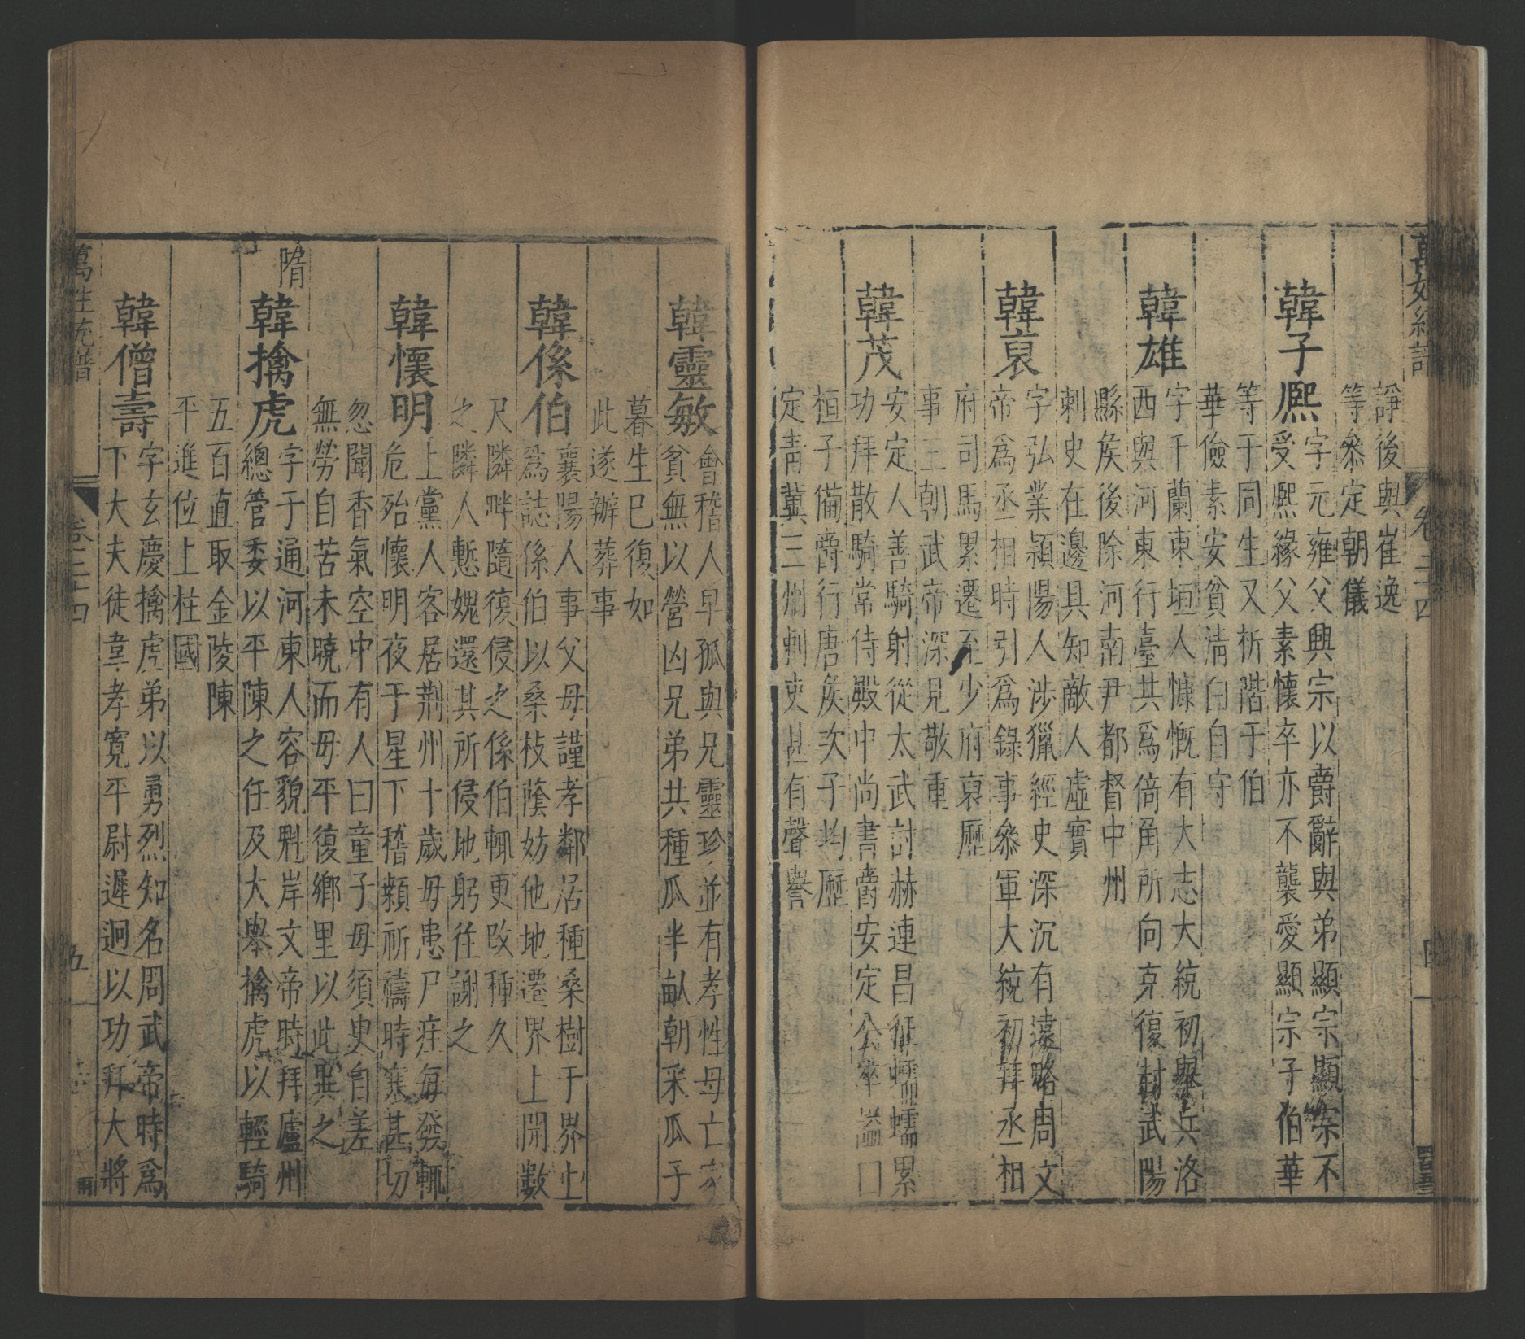 諍後與崔逸
等叅定朝儀
韓子熈
字元雍父興宗以爵辭與弟顯宗顯宗不
受熈緣父素懷卒亦不襲愛顯宗子伯華
等于同生又析階于伯
華儉素安貧清白自守
韓雄
字千蘭東垣人慷慨有大志大統初舉兵洛
西與河東行臺共爲倚角所向克復封武陽
縣矦後除河南尹都督中州
刺史在邊具知敵人虛實
韓裒
字弘業潁陽人涉獵經史深沉有遠略周文
帝爲丞相時引爲錄事叅軍大統初拜丞相
府司馬累遷至少府裒歷
事三朝武帝深見敬重
韓茂
安定人善騎射從太武討赫連昌征蠕蠕累
功拜散騎常侍殿中尚書爵安定公卒謚
桓子備爵行唐矦次子均歷
定青冀三州刺吏甚有聲譽
韓靈敏
會稽人早孤與兄靈珍並有孝性母亡家
貧無以營凶兄弟共種瓜半畝朝采瓜子
暮生已復如
此遂辦葬事
韓係伯
襄陽人事父母謹孝鄰居種桑樹于界上
爲誌係伯以桑枝蔭妨他地遷界上開數
尺隣畔隨復侵之係伯輒更改種久
之隣人慙媿還其所侵地躬往謝之
韓懷明
上黨人客居荆州十歲母患尸疰每發輒
危殆懷明夜于星下稽顙祈禱時寒甚切
忽聞香氣空中有人曰童子母須臾自差
無勞自苦未曉而母平復鄉里以此異之
隋
韓擒虎
字子通河東人容貌魁岸文帝時拜廬州
總管委以平陳之任及大舉擒虎以輕騎
五百直取金陵陳
平進位上柱國
韓僧壽
字玄慶擒虎弟以勇烈知名周武帝時爲
下大夫徒韋孝寬平尉遲迥以功拜大將
萬姓統譜
卷二十四
五